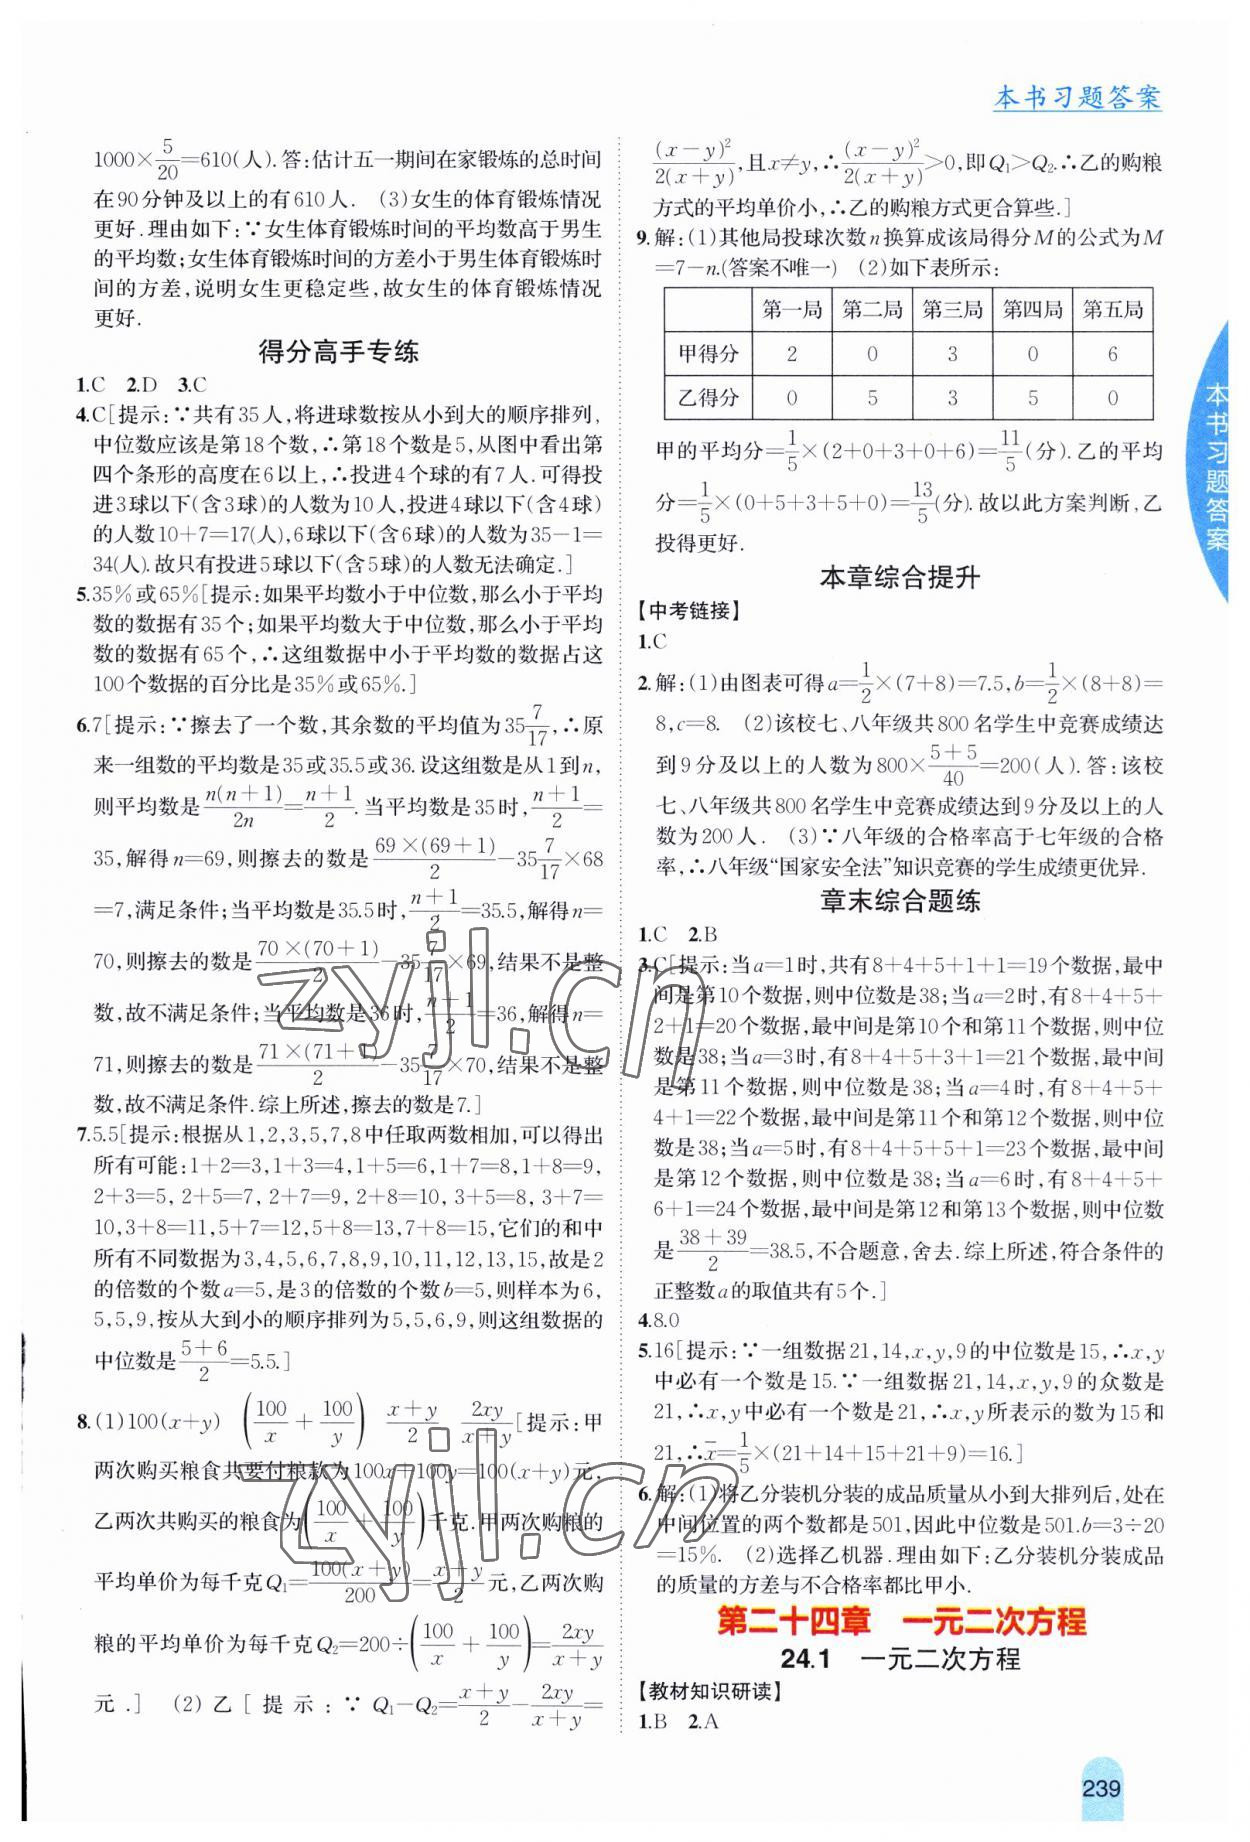 本书习题答案
1000×5/20=610(人).答:估计五一期间在家锻炼的总时间
在90分钟及以上的有610人. (3)女生的体育锻炼情况
更好.理由如下:∵女生体育锻炼时间的平均数高于男生
的平均数;女生体育锻炼时间的方差小于男生体育锻炼时
间的方差,说明女生更稳定些,故女生的体育锻炼情况
更好.
得分高手专练
1.C 2.D 3.C
4.C[提示:∵共有35人,将进球数按从小到大的顺序排列,
中位数应该是第18个数,∴第18个数是5,从图中看出第
四个条形的高度在6以上,∴投进4个球的有7人.可得投
进3球以下(含3球)的人数为10人,投进4球以下(含4球)
的人数10+7=17(人),6球以下(含6球)的人数为35-1=
34(人).故只有投进5球以下(含5球)的人数无法确定.]
5.35%或65%[提示:如果平均数小于中位数,那么小于平均
数的数据有35个;如果平均数大于中位数,那么小于平均
数的数据有65个,∴这组数据中小于平均数的数据占这
100个数据的百分比是35%或65%.]
6.7[提示:∵擦去了一个数,其余数的平均值为35 7/17,∴原
来一组数的平均数是35或35.5或36.设这组数是从1到n,
则平均数是n(n+1)/2n=(n+1)/2.当平均数是35时,(n+1)/2=
35,解得n=69,则擦去的数是69×(69+1)/2-35 7/17×68
=7,满足条件;当平均数是35.5时,(n+1)/2=35.5,解得n=
70,则擦去的数是70×(70+1)/2-35 7/17×69,结果不是整
数,故不满足条件;当平均数是36时,(n+1)/2=36,解得n=
71,则擦去的数是71×(71+1)/2-35 7/17×70,结果不是整
数,故不满足条件.综上所述,擦去的数是7.]
7.5.5[提示:根据从1,2,3,5,7,8中任取两数相加,可以得出
所有可能:1+2=3,1+3=4,1+5=6,1+7=8,1+8=9,
2+3=5,2+5=7,2+7=9,2+8=10,3+5=8,3+7=
10,3+8=11,5+7=12,5+8=13,7+8=15,它们的和中
所有不同数据为3,4,5,6,7,8,9,10,11,12,13,15,故是2
的倍数的个数a=5,是3的倍数的个数b=5,则样本为6,
5,5,9,按从大到小的顺序排列为5,5,6,9,则这组数据的
中位数是(5+6)/2=5.5.]
8.(1)100(x+y) (100/x+100/y) (x+y)/2 2xy/(x+y)[提示:甲
两次购买粮食共要付粮款为100x+100y=100(x+y)元,
乙两次共购买的粮食为(100/x+100/y)千克.甲两次购粮的
平均单价为每千克Q₁=100(x+y)/200=(x+y)/2元,乙两次购
粮的平均单价为每千克Q₂=200÷(100/x+100/y)=2xy/(x+y)
元.] (2)乙[提示:∵Q₁-Q₂=(x+y)/2-2xy/(x+y)=
(x-y)²/2(x+y),且x≠y,∴(x-y)²/2(x+y)>0,即Q₁>Q₂.∴乙的购粮
方式的平均单价小,∴乙的购粮方式更合算些.]
9.解:(1)其他局投球次数n换算成该局得分M的公式为M
=7-n.(答案不唯一) (2)如下表所示:
第一局 第二局 第三局 第四局 第五局
甲得分 2 0 3 0 6
乙得分 0 5 3 5 0
甲的平均分=1/5×(2+0+3+0+6)=11/5(分).乙的平均
分=1/5×(0+5+3+5+0)=13/5(分).故以此方案判断,乙
投得更好.
本章综合提升
【中考链接】
1.C
2.解:(1)由图表可得a=1/2×(7+8)=7.5,b=1/2×(8+8)=
8,c=8. (2)该校七、八年级共800名学生中竞赛成绩达
到9分及以上的人数为800×(5+5)/40=200(人).答:该校
七、八年级共800名学生中竞赛成绩达到9分及以上的人
数为200人. (3)∵八年级的合格率高于七年级的合格
率,∴八年级“国家安全法”知识竞赛的学生成绩更优异.
章末综合题练
1.C 2.B
3.C[提示:当a=1时,共有8+4+5+1+1=19个数据,最中
间是第10个数据,则中位数是38;当a=2时,有8+4+5+
2+1=20个数据,最中间是第10个和第11个数据,则中位
数是38;当a=3时,有8+4+5+3+1=21个数据,最中间
是第11个数据,则中位数是38;当a=4时,有8+4+5+
4+1=22个数据,最中间是第11个和第12个数据,则中位
数是38;当a=5时,有8+4+5+5+1=23个数据,最中间
是第12个数据,则中位数是38;当a=6时,有8+4+5+
6+1=24个数据,最中间是第12和第13个数据,则中位数
是(38+39)/2=38.5,不合题意,舍去.综上所述,符合条件的
正整数a的取值共有5个.]
4.8.0
5.16[提示:∵一组数据21,14,x,y,9的中位数是15,∴x,y
中必有一个数是15.∵一组数据21,14,x,y,9的众数是
21,∴x,y中必有一个数是21,∴x,y所表示的数为15和
21,∴x̄=1/5×(21+14+15+21+9)=16.]
6.解:(1)将乙分装机分装的成品质量从小到大排列后,处在
中间位置的两个数都是501,因此中位数是501.b=3÷20
=15%. (2)选择乙机器.理由如下:乙分装机分装成品
的质量的方差与不合格率都比甲小.
第二十四章 一元二次方程
24.1 一元二次方程
【教材知识研读】
1.B 2.A
本书习题答案
239
zyjl.cn
zyjl.cn